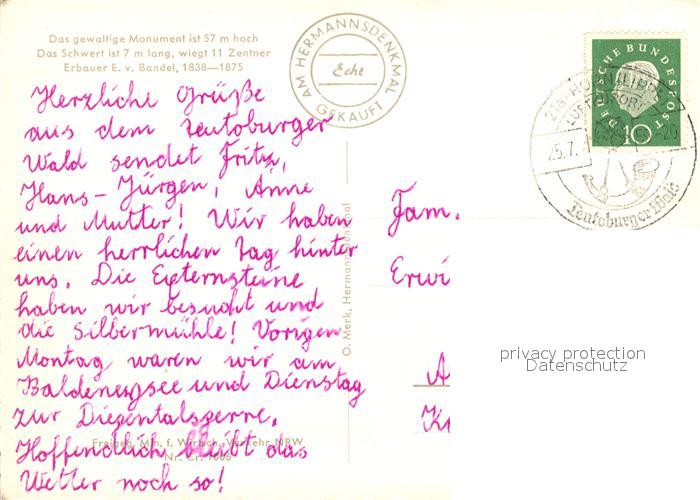 Das gewaltige Monument ist 57 m hoch
Das Schwert ist 7 m lang, wiegt 11 Zentner
Erbauer E. v. Bandel, 1838—1875
AM HERMANNSDENKMAL
Echt
GEKAUFT
DEUTSCHE BUNDESPOST
10
25.7.
-20
Teutoburger Wald
Herzliche Grüße
aus dem Teutoburger
Wald sendet Fritz,
Hans-Jürgen, Änne
und Mutter! Wir haben
einen herrlichen Tag hinter
uns. Die Externsteine
haben wir besucht und
die Silbermühle! Vorigen
Montag waren wir am
Baldeneysee und Dienstag
zur Diepentalsperre.
Hoffendlich bleibt das
Wetter noch so!
Freigeg. Min. f. Wirtsch. Verkehr NRW
O. Merk, Hermannsdenkmal
Fam.
Erwi
A
privacy protection
Datenschutz